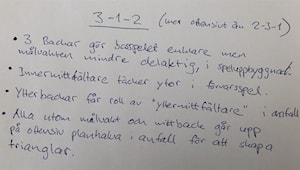 3-1-2 (mer offensivt än 2-3-1)
• 3 Backar gör låsspelet enklare men
målvakten mindre delaktig, i speluppbyggnad.
• Innermittfältare täcker ytor i försvarsspel.
• Ytterbackar får roll av "yttermittfältare" i anfall
• Alla utom målvakt och mittback går upp
på offensiv planhalva i anfall för att skapa
trianglar.